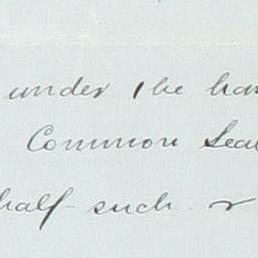 under the han
Common Seal
half such r